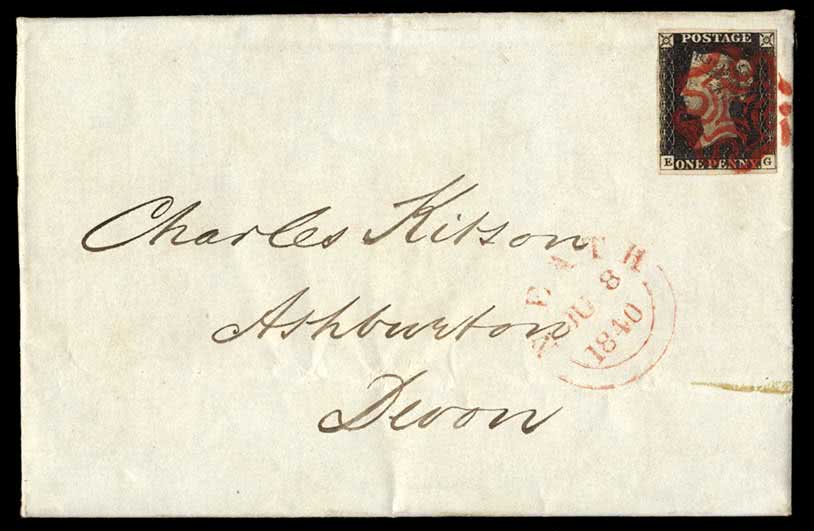 POSTAGE
E ONE PENNY. G
Charles Kitson
Ashburton
Devon
NEATH
JU 8
1840